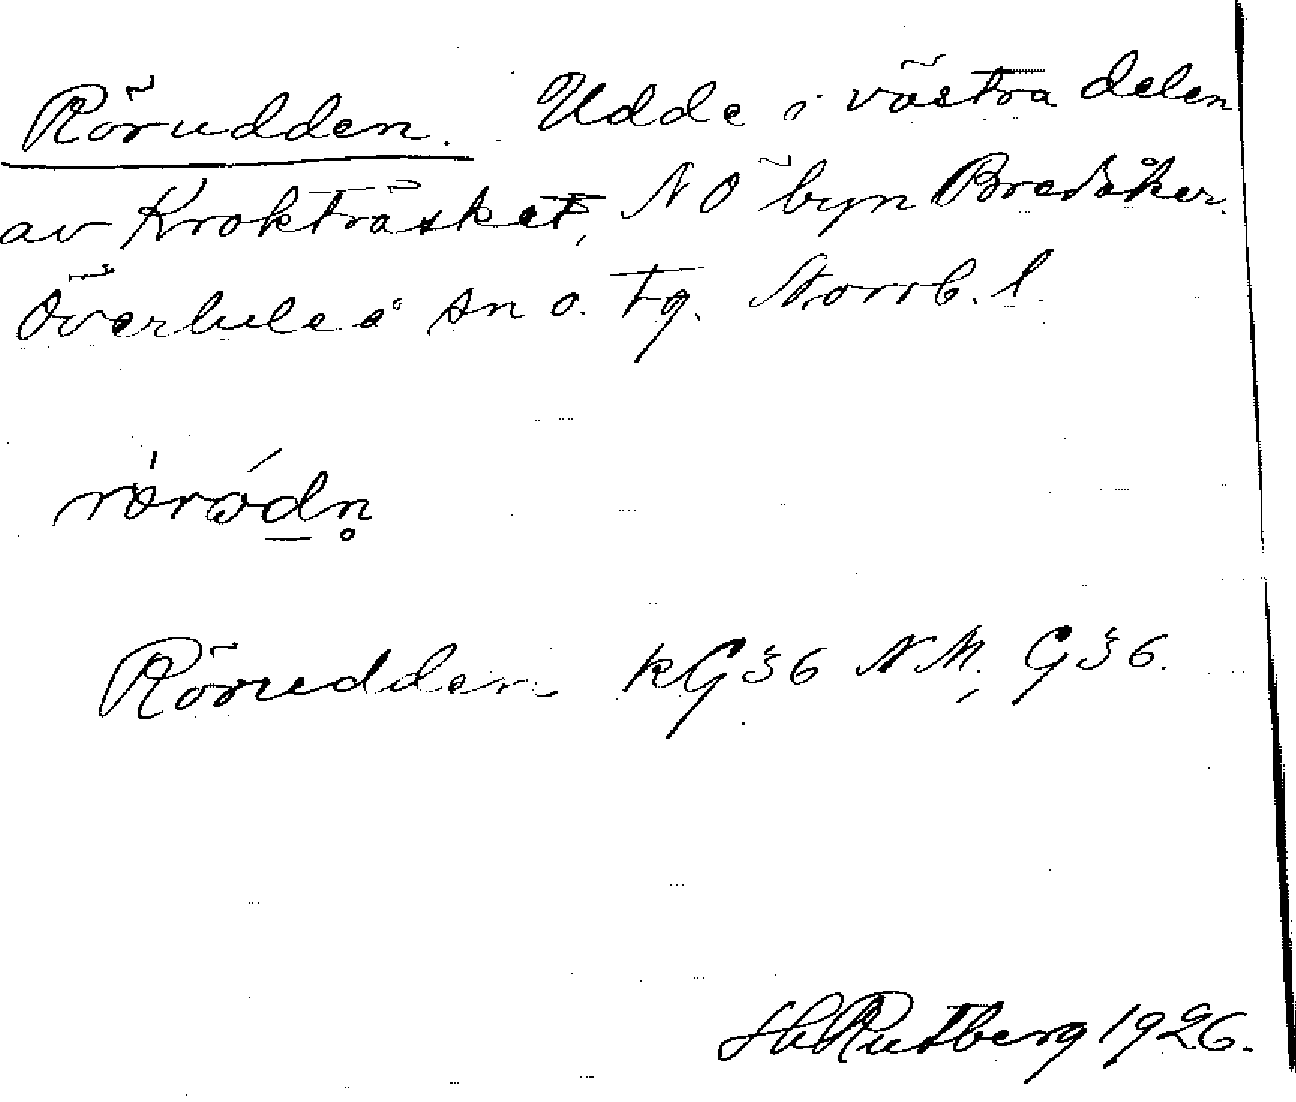 Rörudden. Udde i västra delen
av Kroktträsket, NÖ byn Bredåker.
Överluleå sn o. tg. Norrb. l.
Rörudden kG36 NM, G36.
H Rutberg 1926.